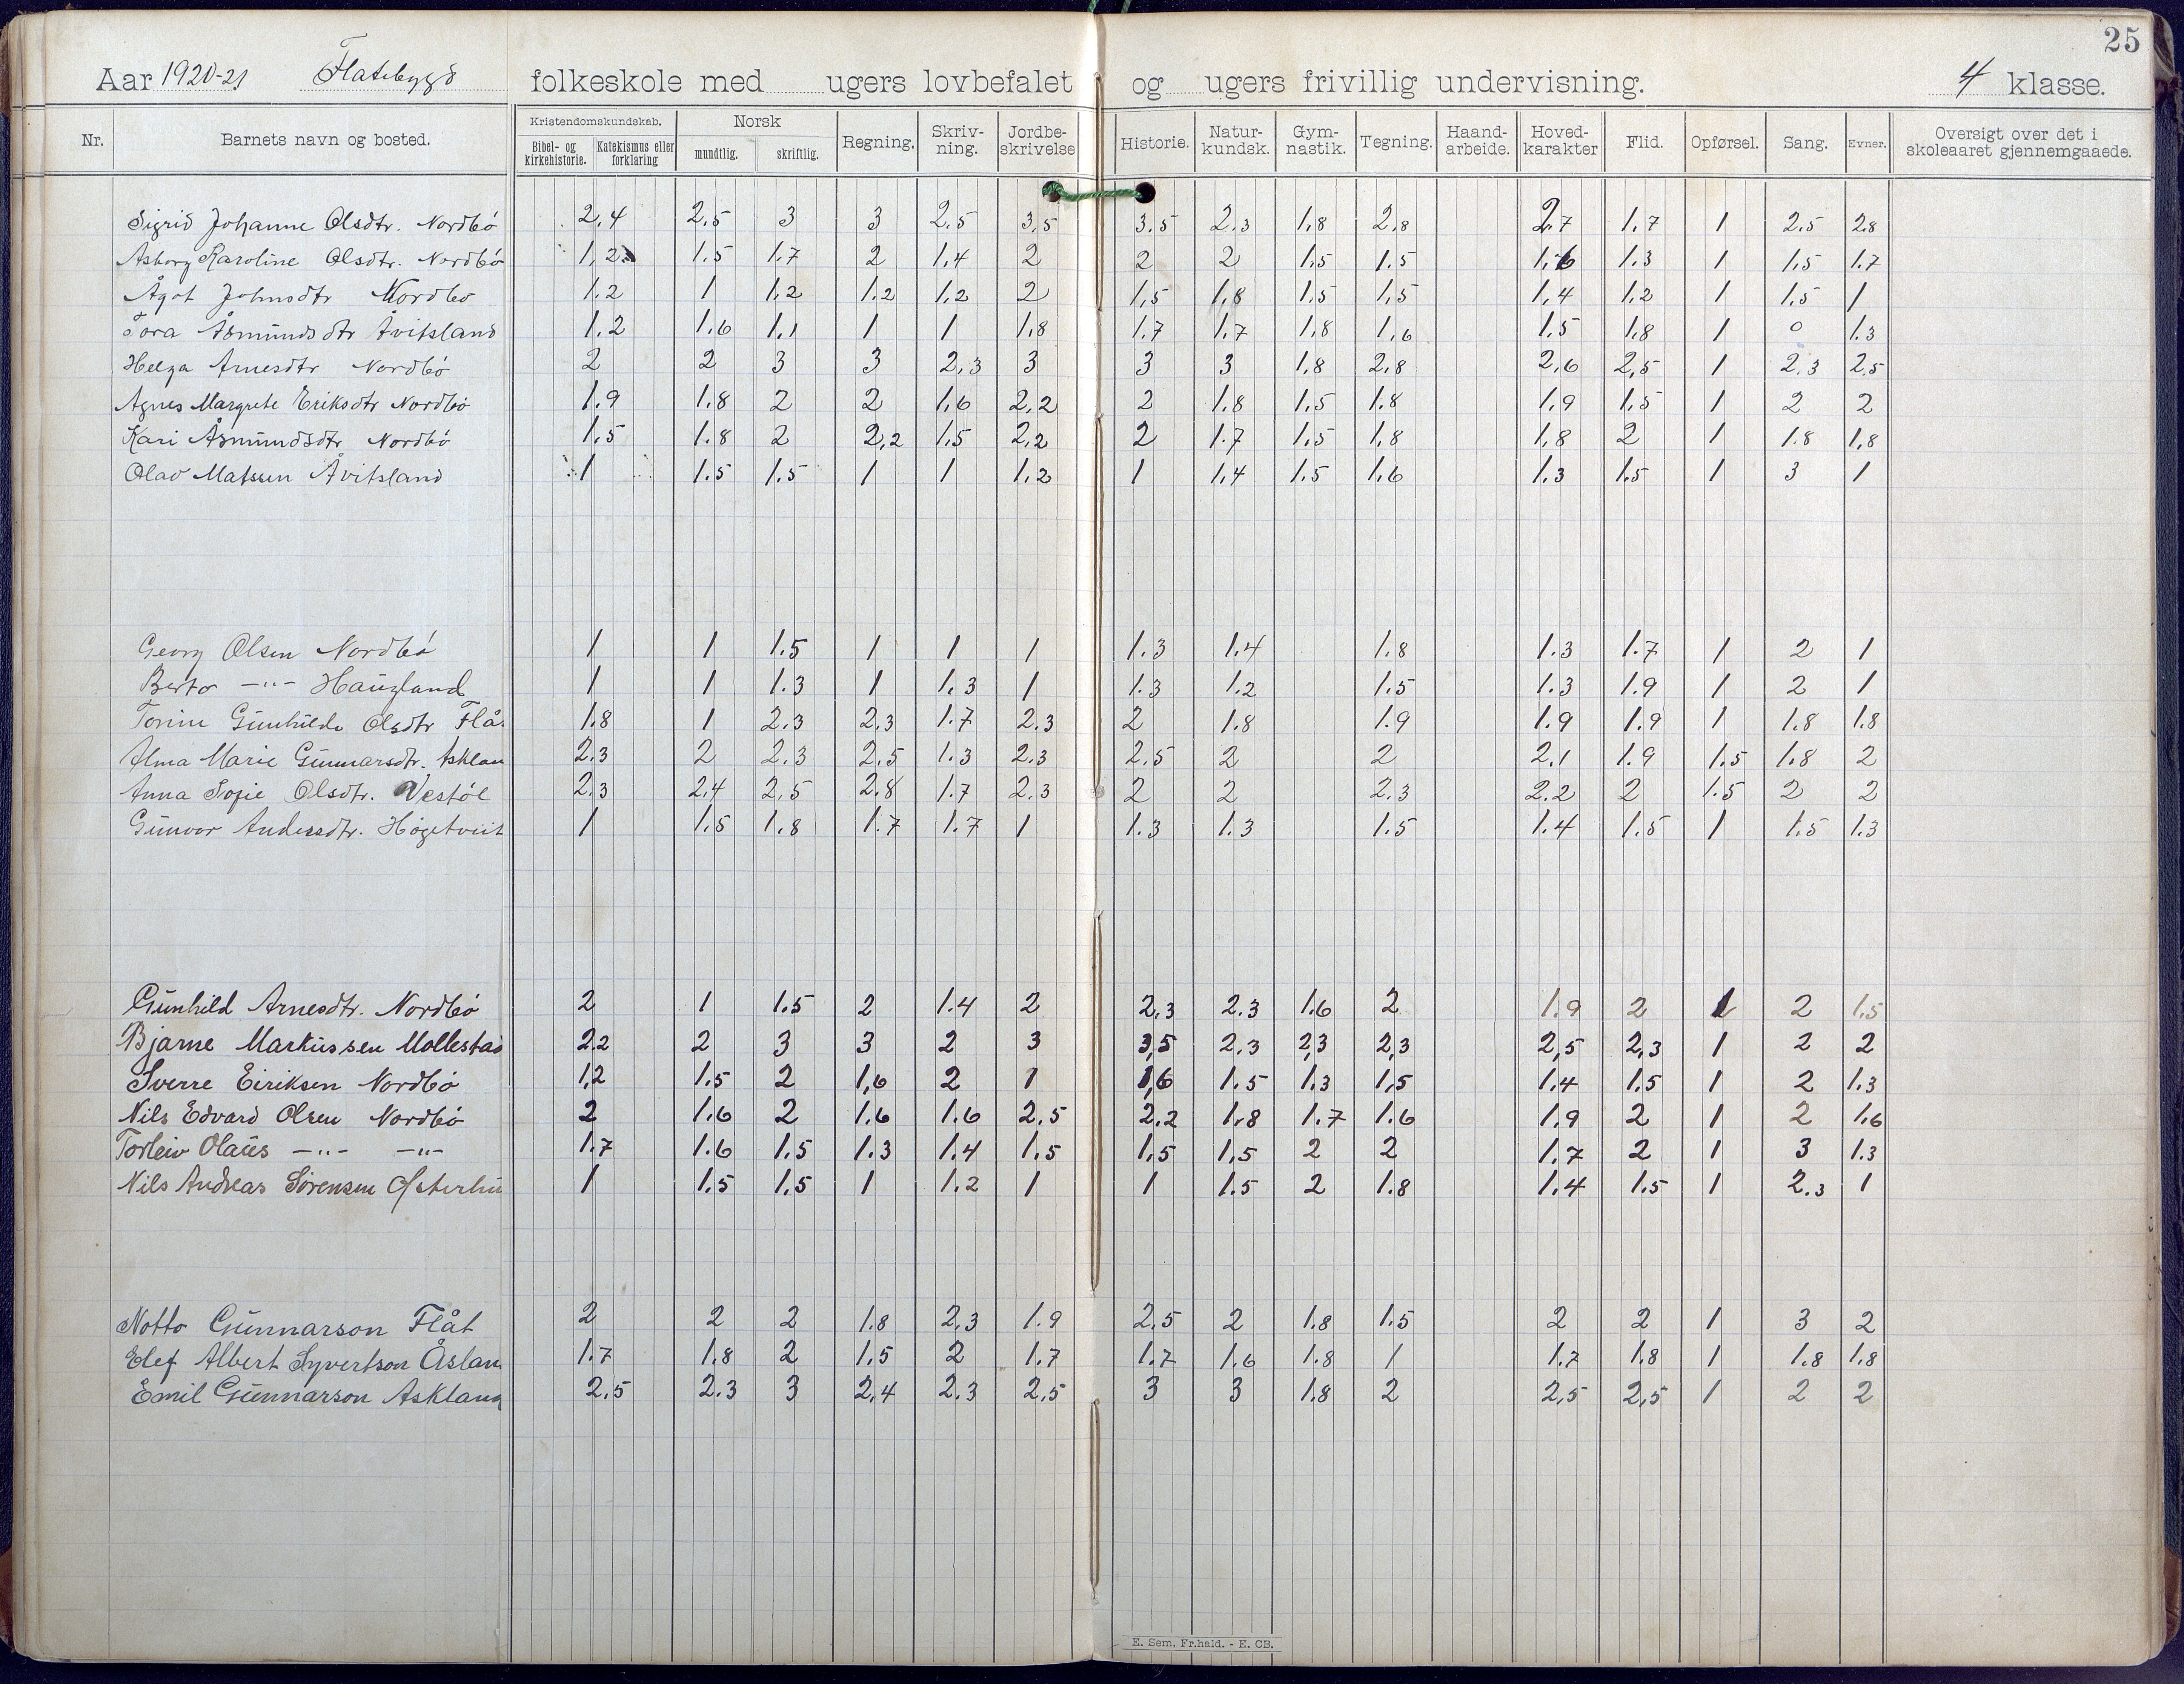 25
Aar 1920-21 Flatebygd folkeskole med ugers lovbefalet og ugers frivillig undervisning. 4 klasse.
Nr. Barnets navn og bosted. Kristendomskundskab. Bibel- og kirkehistorie. Katekismus eller forklaring Norsk mundtlig. skriftlig. Regning. Skriv-ning. Jordbe-skrivelse Historie. Natur-kundsk. Gym-nastik. Tegning. Haand-arbeide. Hoved-karakter Flid. Opførsel. Sang. Evner. Oversigt over det i skoleaaret gjennemgaaede.
Sigrid Johanne Olsdtr. Nordbö 2,4 2,5 3 3 2,5 3,5 3.5 2.3 1,8 2,8 2,7 1,7 1 2.5 2.8
Asborg Karoline Olsdtr. Nordbö 1,2 1.5 1.7 2 1,4 2 2 2 1,5 1.5 1,6 1.3 1 1,5 1.7
Ågot Johnsdtr Nordbö 1.2 1 1,2 1,2 1,2 2 1,5 1,8 1,5 1,5 1,4 1,2 1 1,5 1
Tora Åsmundsdtr Åvitsland 1.2 1,6 1,1 1 1 1,8 1.7 1,7 1,8 1,6 1.5 1,8 1 0 1.3
Helga Arnesdtr Nordbö 2 2 3 3 2,3 3 3 3 1,8 2,8 2,6 2,5 1 2.3 2.5
Agnes Margrete Eriksdtr Nordbö 1.9 1.8 2 2 1,6 2,2 2 1.8 1.5 1.8 1.9 1.5 1 2 2
Kari Åsmundsdtr Nordbö 1.5 1.8 2 2,2 1.5 2,2 2 1.7 1,5 1,8 1,8 2 1 1.8 1,8
Olav Matssen Åvitsland 1 1.5 1.5 1 1 1,2 1 1,4 1.5 1,6 1.3 1.5 1 3 1
Georg Olsen Nordbö 1 1 1.5 1 1 1 1.3 1.4 1.8 1.3 1.7 1 2 1
Berto -"- Haugland 1 1 1.3 1 1.3 1 1.3 1.2 1.5 1.3 1.9 1 2 1
Torine Gunhilde Olsdtr Flå 1.8 1 2.3 2.3 1.7 2.3 2 1.8 1.9 1.9 1.9 1 1.8 1.8
Alma Marie Gunnarsdtr. Asklan 2.3 2 2.3 2.5 1.3 2.3 2.5 2 2 2.1 1.9 1.5 1.8 2
Anna Sofie Olsdtr. Vestöl 2.3 2.4 2.5 2.8 1.7 2.3 2 2 2.3 2.2 2 1.5 2 2
Gunvor Andersdtr. Högetveit 1 1.5 1.8 1.7 1.7 1 1.3 1.3 1.5 1.4 1.5 1 1.5 1.3
Gunhild Arnesdtr. Nordbö 2 1 1.5 2 1.4 2 2,3 2.3 1.6 2 1.9 2 1 2 1.5
Bjarne Markussen Mollestad 2.2 2 3 3 2 3 3,5 2.3 2,3 2,3 2,5 2,3 1 2 2
Sverre Eiriksen Nordbö 1,2 1.5 2 1,6 2 1 1,6 1.5 1.3 1,5 1.4 1.5 1 2 1.3
Nils Edvard Olsen Nordbö 2 1.6 2 1.6 1.6 2.5 2.2 1.8 1.7 1.6 1.9 2 1 2 1.6
Torleiv Olaus -"- -"- 1.7 1.6 1.5 1.3 1.4 1.5 1,5 1,5 2 2 1.7 2 1 3 1.3
Nils Andreas Sörensen Osterhu 1 1.5 1.5 1 1.2 1 1 1.5 2 1.8 1.4 1.5 1 2.3 1
Notto Gunnarson Flåt 2 2 2 1.8 2.3 1.9 2.5 2 1.8 1.5 2 2 1 3 2
Elef Albert Syvertson Åslan 1.7 1.8 2 1,5 2 1.7 1.7 1.6 1.8 1 1.7 1.8 1 1.8 1.8
Emil Gunnarson Askland 2.5 2.3 3 2,4 2.3 2,5 3 3 1.8 2 2,5 2,5 1 2 2
E. Sem, Fr.hald. - E. CB.